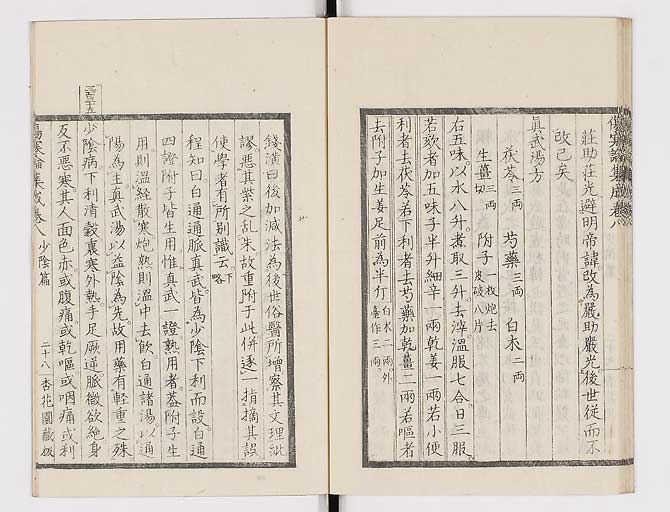 傷寒論集成卷八
莊助莊光避明帝諱改為嚴助嚴光後世從而不
改已矣
眞武湯方
茯苓三兩 芍藥三兩 白朮二兩
生薑三兩切 附子一枚炮去皮破八片
右五味以水八升煮取三升去滓溫服七合日三服
若欬者加五味子半升細辛一兩乾姜一兩若小便
利者去茯苓若下利者去芍藥加乾薑二兩若嘔者
去附子加生姜足前為半斤白朮二兩外臺作三兩
錢潢曰後加減法為後世俗醫所增察其文理紕
謬惡其紫之亂朱故重附于此併逐一指摘其誤
使學者有所別識云下略
程知曰白通通脈真武皆為少陰下利而設白通
四證附子皆生用惟真武一證熟用者蓋附子生
用則溫經散寒炮熟則溫中去飲白通諸湯以通
陽為主真武湯以益陰為先故用藥有輕重之殊
三百二十五
少陰病下利清穀裏寒外熱手足厥逆脈微欲絶身
反不惡寒其人面色赤或腹痛或乾嘔或咽痛或利
傷寒論集成卷八 少陰篇 二十八 杏花園藏板